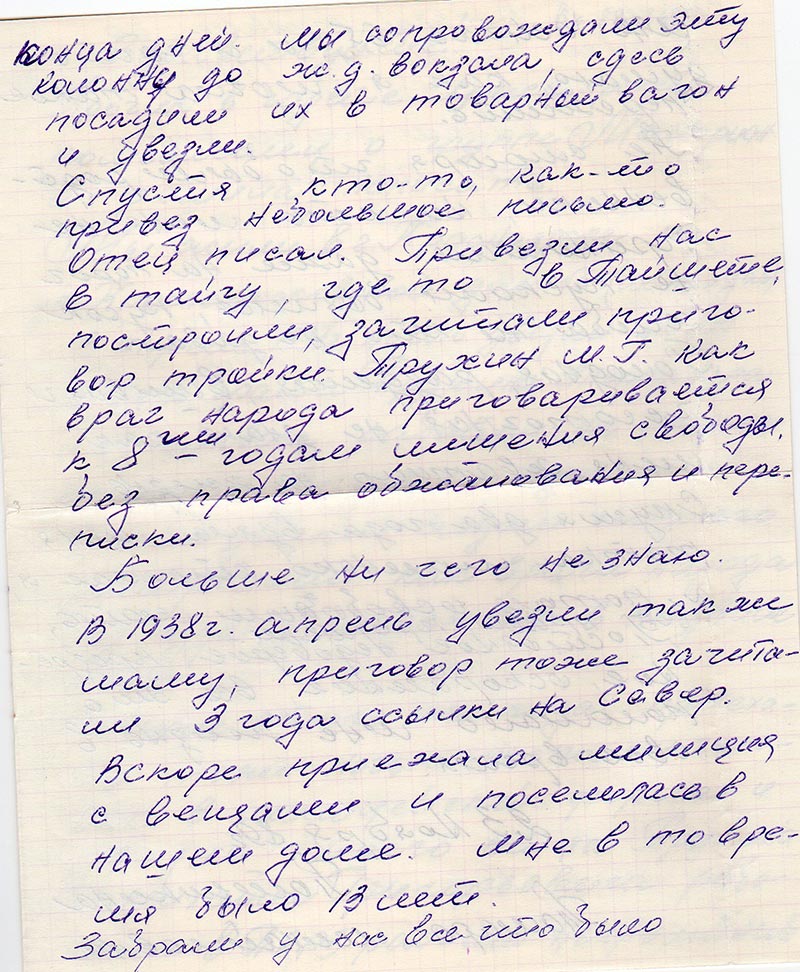 конца дней. Мы сопровождали эту
колонну до ж.д. вокзала, сдесь
посадили их в товарный вагон
и увезли.
Спустя, кто-то, как-то
привез небольшое письмо.
Отец писал. Привезли нас
в тайгу, где то в Тайшете,
построили, зачитали приго-
вор тройки. Трухин М.Г. как
враг народа приговаривается
к 8ми – годам лишения свободы,
без права обжалования и пере-
писки.
Больше ни чего не знаю.
В 1938г. апрель увезли так же
маму, приговор тоже зачита-
ли 3 года ссылки на Север.
Вскоре приехала милиция
с вещами и поселилась в
нашем доме. Мне в то вре-
мя было 13 лет.
Забрали у нас все что было